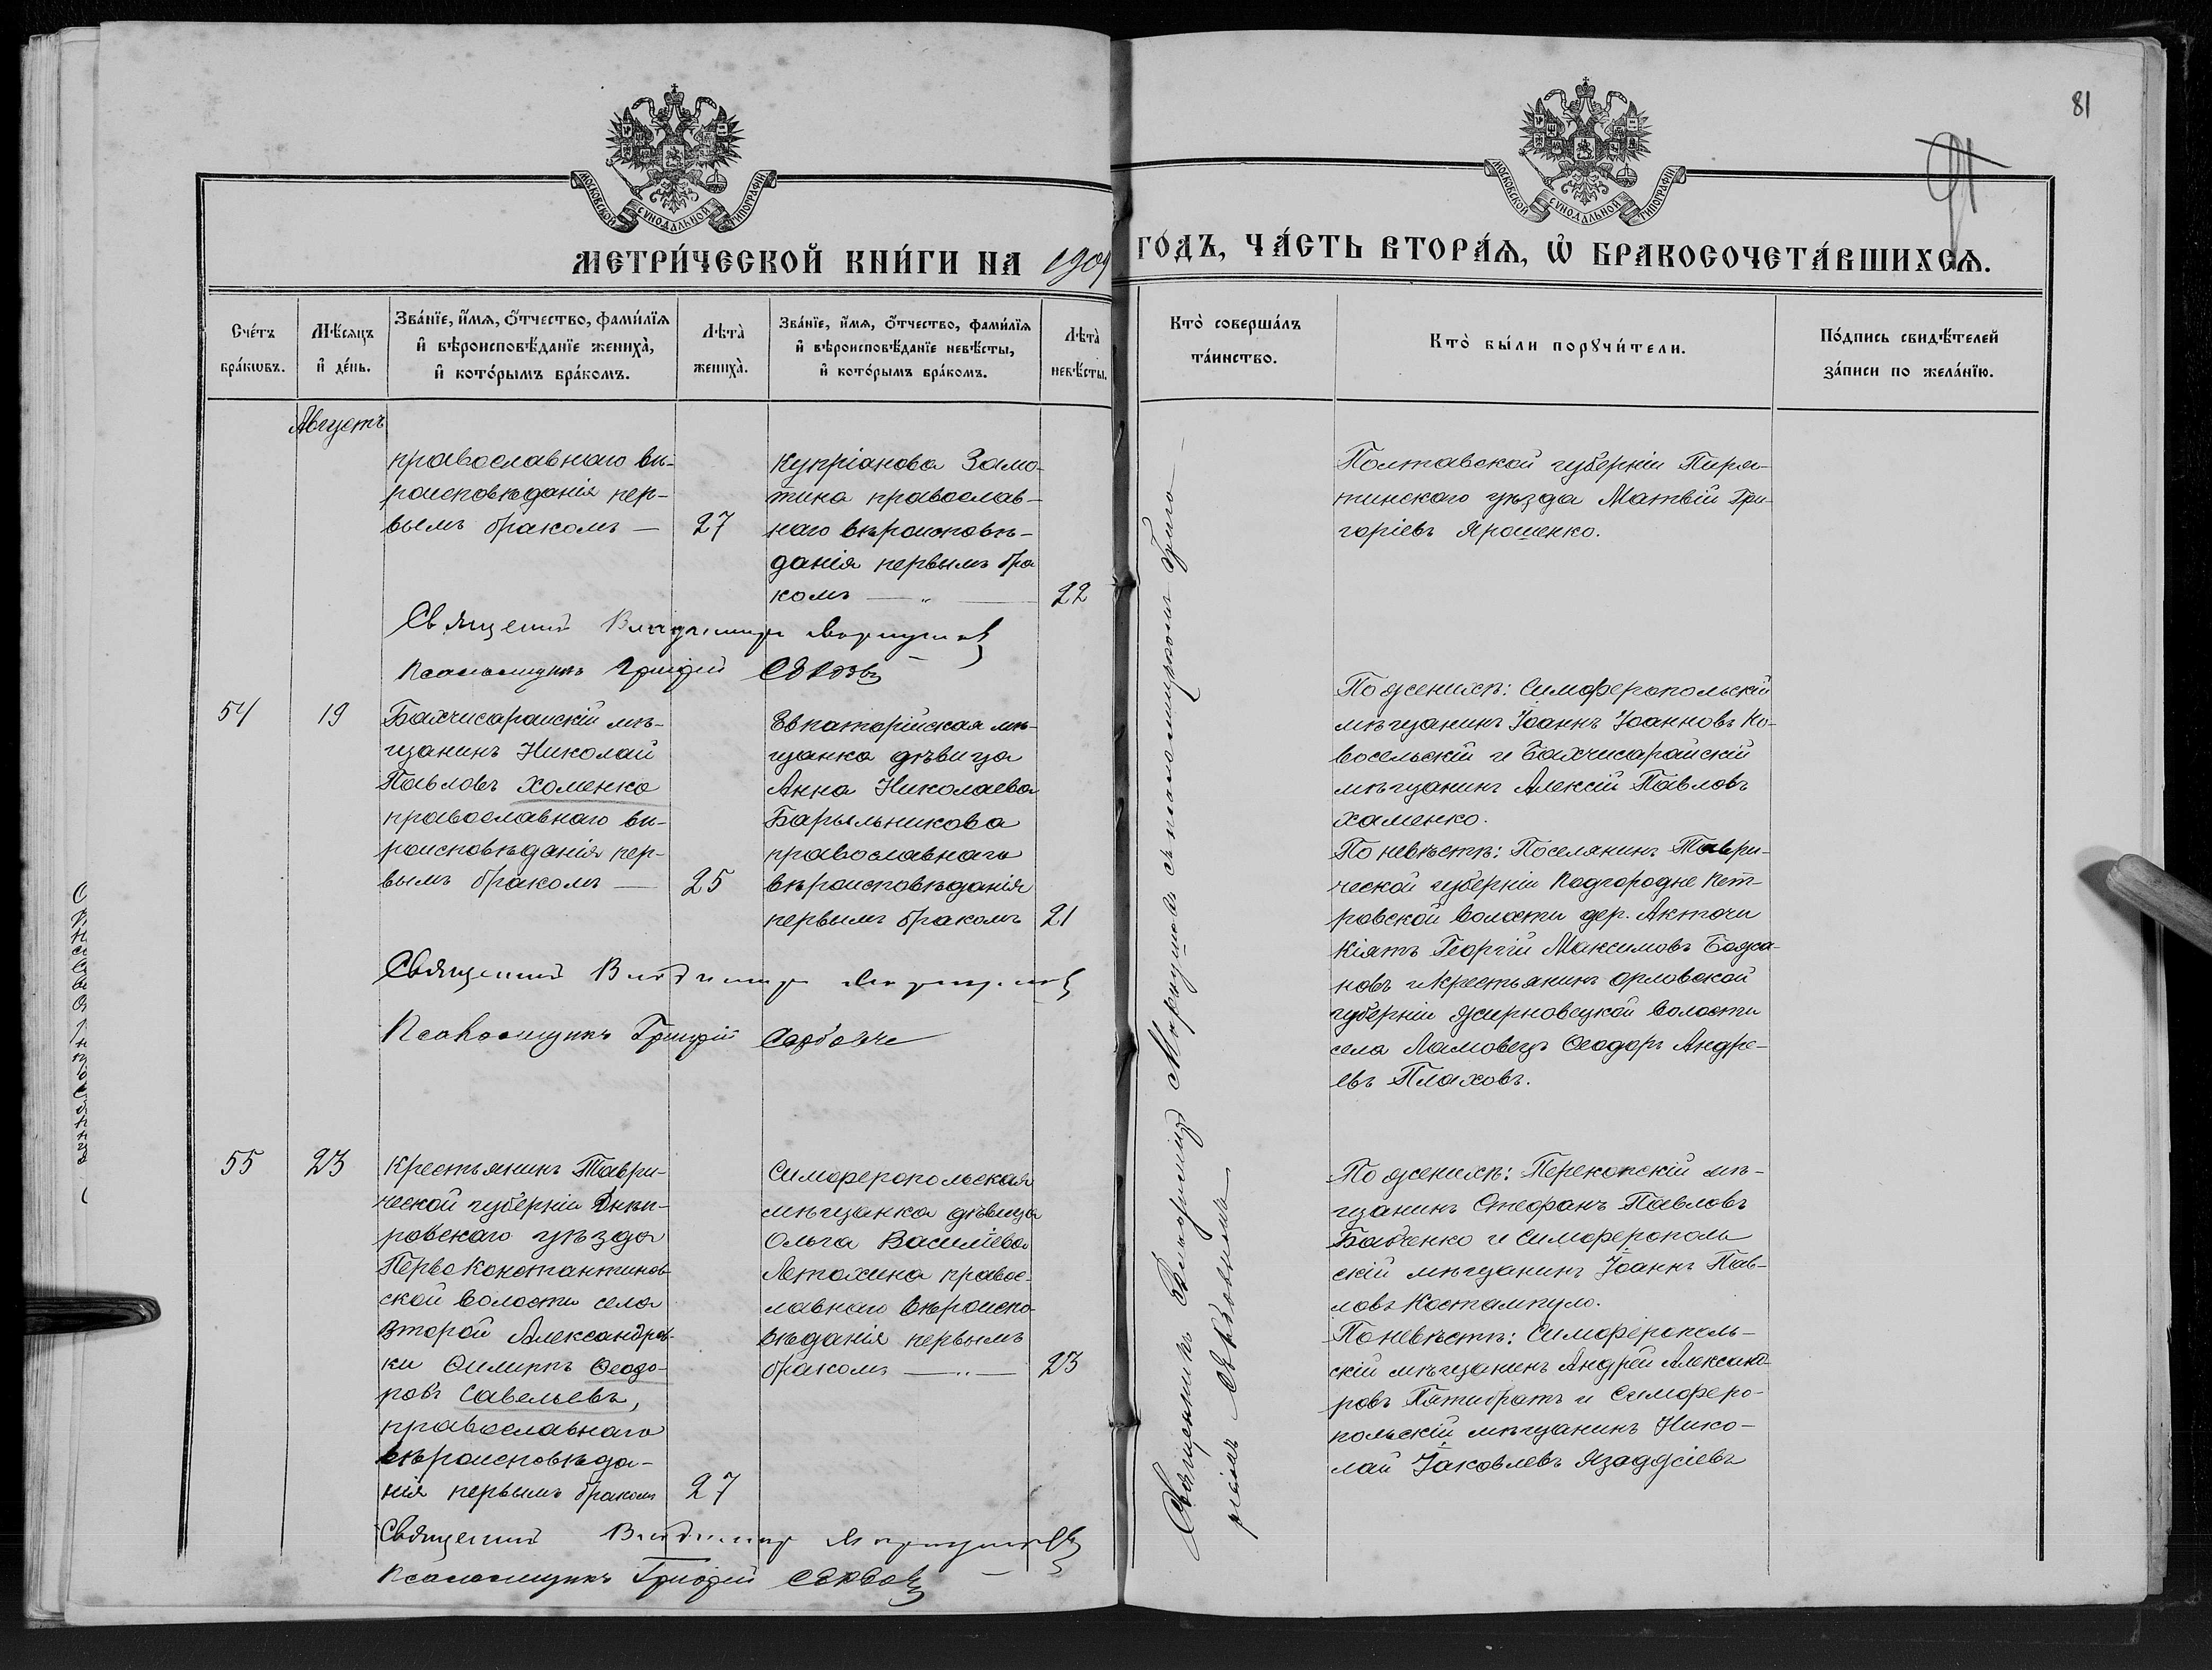 81
91
МОСКОВСКОЙ СУНОДАЛЬНОЙ ТИПОГРАФІИ
МОСКОВСКОЙ СУНОДАЛЬНОЙ ТИПОГРАФІИ
МЕТРИ́ЧЕСКОЙ КНИ́ГИ НА 1909
ГО́ДЪ, ЧА́СТЬ ВТОРА́Ѧ, Ѽ БРАКОСОЧЕТА́ВШИХСѦ.
Сче́тъ бра́кѡвъ.
Мѣ́сѧцъ и҆ де́нь.
Зва́нїе, и҆́мѧ, ѻ҆́тчество, фами́лїѧ
и҆ вѣроисповѣ́данїе жениха̀,
и҆ кото́рымъ бра́комъ.
Лѣта̀ жениха̀.
Зва́нїе, и҆́мѧ, ѻ҆́тчество, фами́лїѧ
и҆ вѣроисповѣ́данїе невѣ́сты,
и҆ кото́рымъ бра́комъ.
Лѣта̀ невѣ́сты.
Кто̀ соверша́лъ
та́инство.
Кто̀ бы́ли порꙋчи́тели.
По́дпись свидѣ́телей
за́писи по жела́нїю.
Августъ
православнаго вѣ-
роисповѣданія пер-
вымъ бракомъ — 27
Купріанова Замо-
тина православ-
наго вѣроисповѣ-
данія первымъ бра
комъ — „ — 22
Полтавской губерніи Пиря-
тинскаго уѣзда Матвій Гри-
горіевъ Ярошенко.
Священникъ Владиміръ
Псаломщикъ Григорій
54
19
Бахчисарайскій мѣ-
щанинъ Николай
Павловъ Хоменко
православнаго вѣ-
роисповѣданія пер-
вымъ бракомъ — 25
Евпаторійская мѣ-
щанка дѣвица
Анна Николаева
Барыльникова
православнаго
вѣроисповѣданія
первымъ бракомъ 21
По женихѣ: Симферопольскій
мѣщанинъ Іоаннъ Іоанновъ Ко-
восельскій и Бахчисарайскій
мѣщанинъ Алексій Павловъ
Хаменко.
По невѣстѣ: Поселянинъ Таври-
ческой губерніи Подгородне Пет-
ровской волости дер. Актачи
Кіятъ Георгій Максимовъ Бояжа-
новъ и крестьянинъ Орловской
губерніи Жирновецкой волости
села Ламовецъ Ѳеодоръ Андре-
евъ Плаховъ.
Священникъ Владиміръ
Псаломщикъ Григорій
55
23
Крестьянинъ Таври-
ческой губерніи Днѣп-
ровскаго уѣзда
Первоконстантинов-
ской волости села
Второй Александров-
ки Филиппъ Ѳеодо-
ровъ Савельевъ,
православнаго
вѣроисповѣда-
нія первымъ бракомъ 27
Симферопольская
мѣщанка дѣвица
Ольга Василіева
Летохина правос-
лавнаго вѣроиспо-
вѣданія первымъ
бракомъ — „ — 23
По женихѣ: Перекопскій мѣ-
щанинъ Стефанъ Павловъ
Бабченко и Симферополь
скій мѣщанинъ Іоаннъ Пав-
ловъ Костампуло.
По невѣстѣ: Симферополь-
скій мѣщанинъ Андрей Александ-
ровъ Пятибратъ и Симферо-
польскій мѣщанинъ Нико-
лай Іаковлевъ
Священникъ Владиміръ
Псаломщикъ Григорій
Священникъ Владиміръ съ псаломщикомъ Григо-
ріемъ